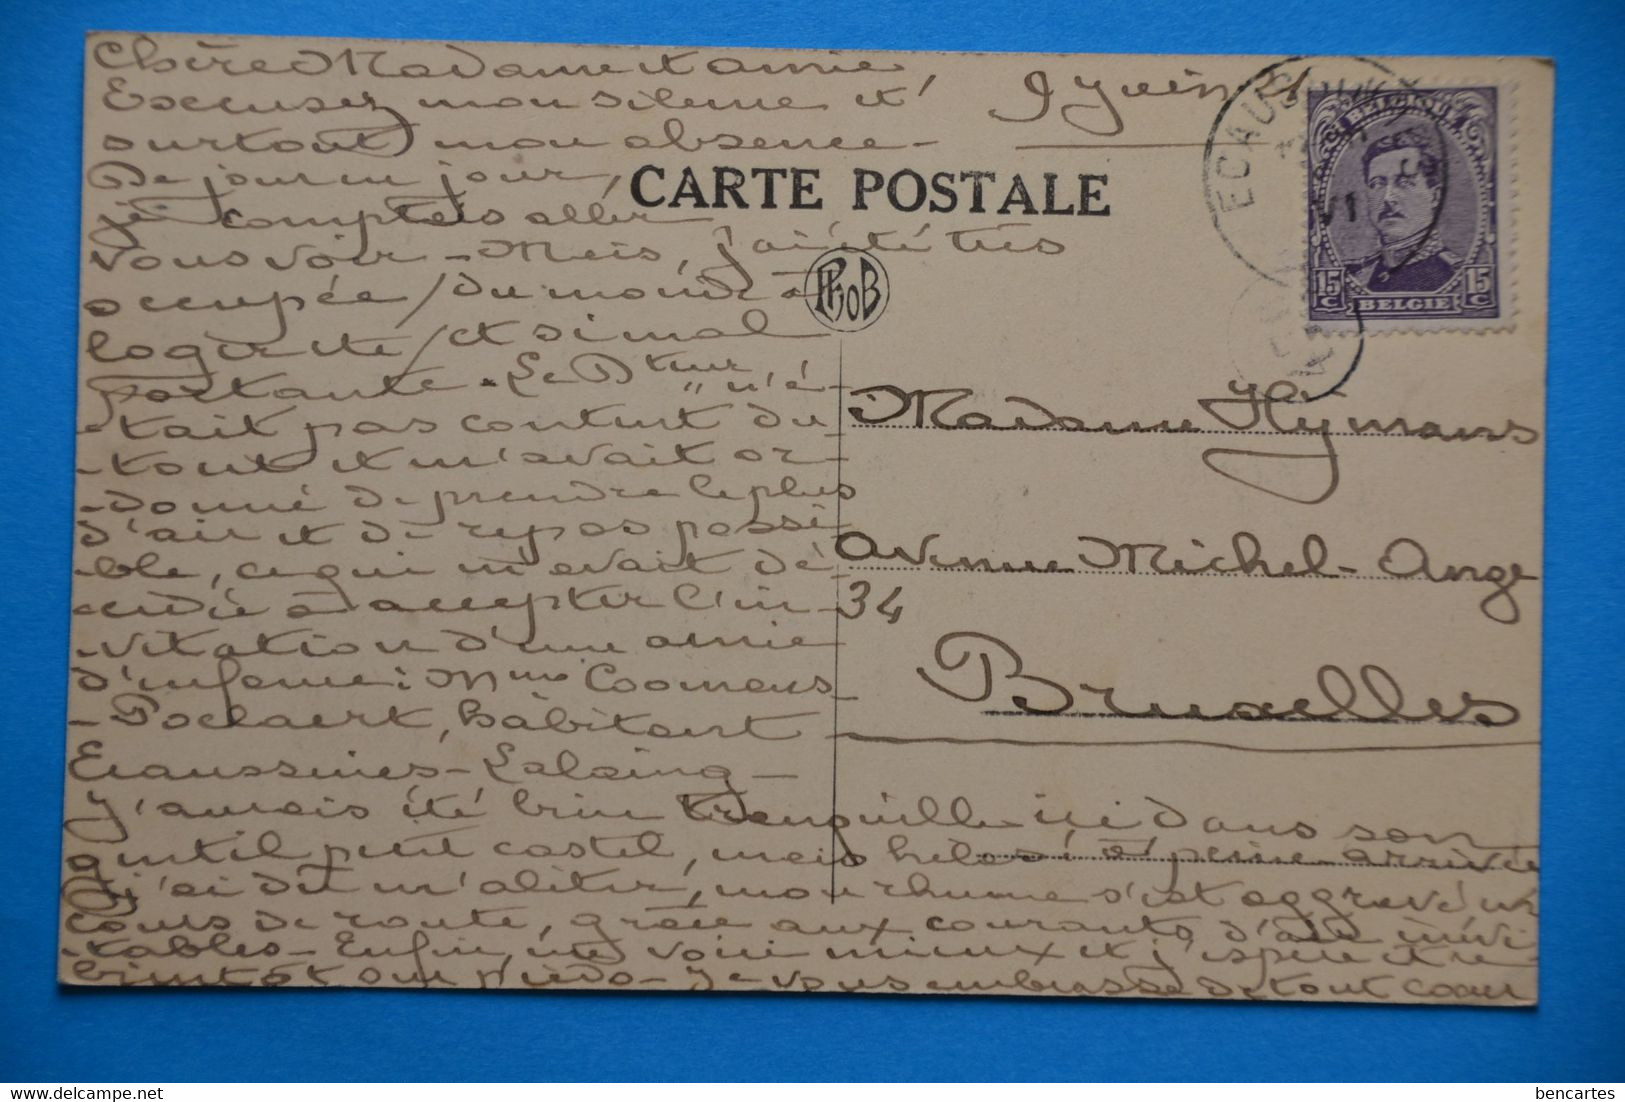 Chère Madame et amie,
Excusez mon silence et
surtout mon absence -
De jour en jour,
je comptais aller
vous voir - Mais, j'ai été très
occupée, du monde à
loger etc, et si mal
portante. Le Dteur n'é-
-tait pas content du
-tout et m'avait or-
-donné de prendre le plus
d'air et de repos possi-
-ble, ce qui m'avait dé-
-cidée à accepter l'in-
-vitation d'une amie
d'enfance: Mme Coomans
- Poelaert, habitant
Ecaussines - Lalaing -
J'aurais été bien tranquille ici dans son
gentil petit castel, mais hélas! à peine arrivée
j'ai dû m'aliter, mon rhume s'est aggravé en
cours de route, grâce aux courants d'air inévi
-tables - Enfin, me voici mieux et j'espère être
bientôt sur pied - Je vous embrasse de tout coeur
9 juin
CARTE POSTALE
PhoB
ECAUSSIN
VI
BELGIQUE
15 C
15 C
BELGIE
Madame Hymans
avenue Michel-Ange
34
Bruxelles
bencartes